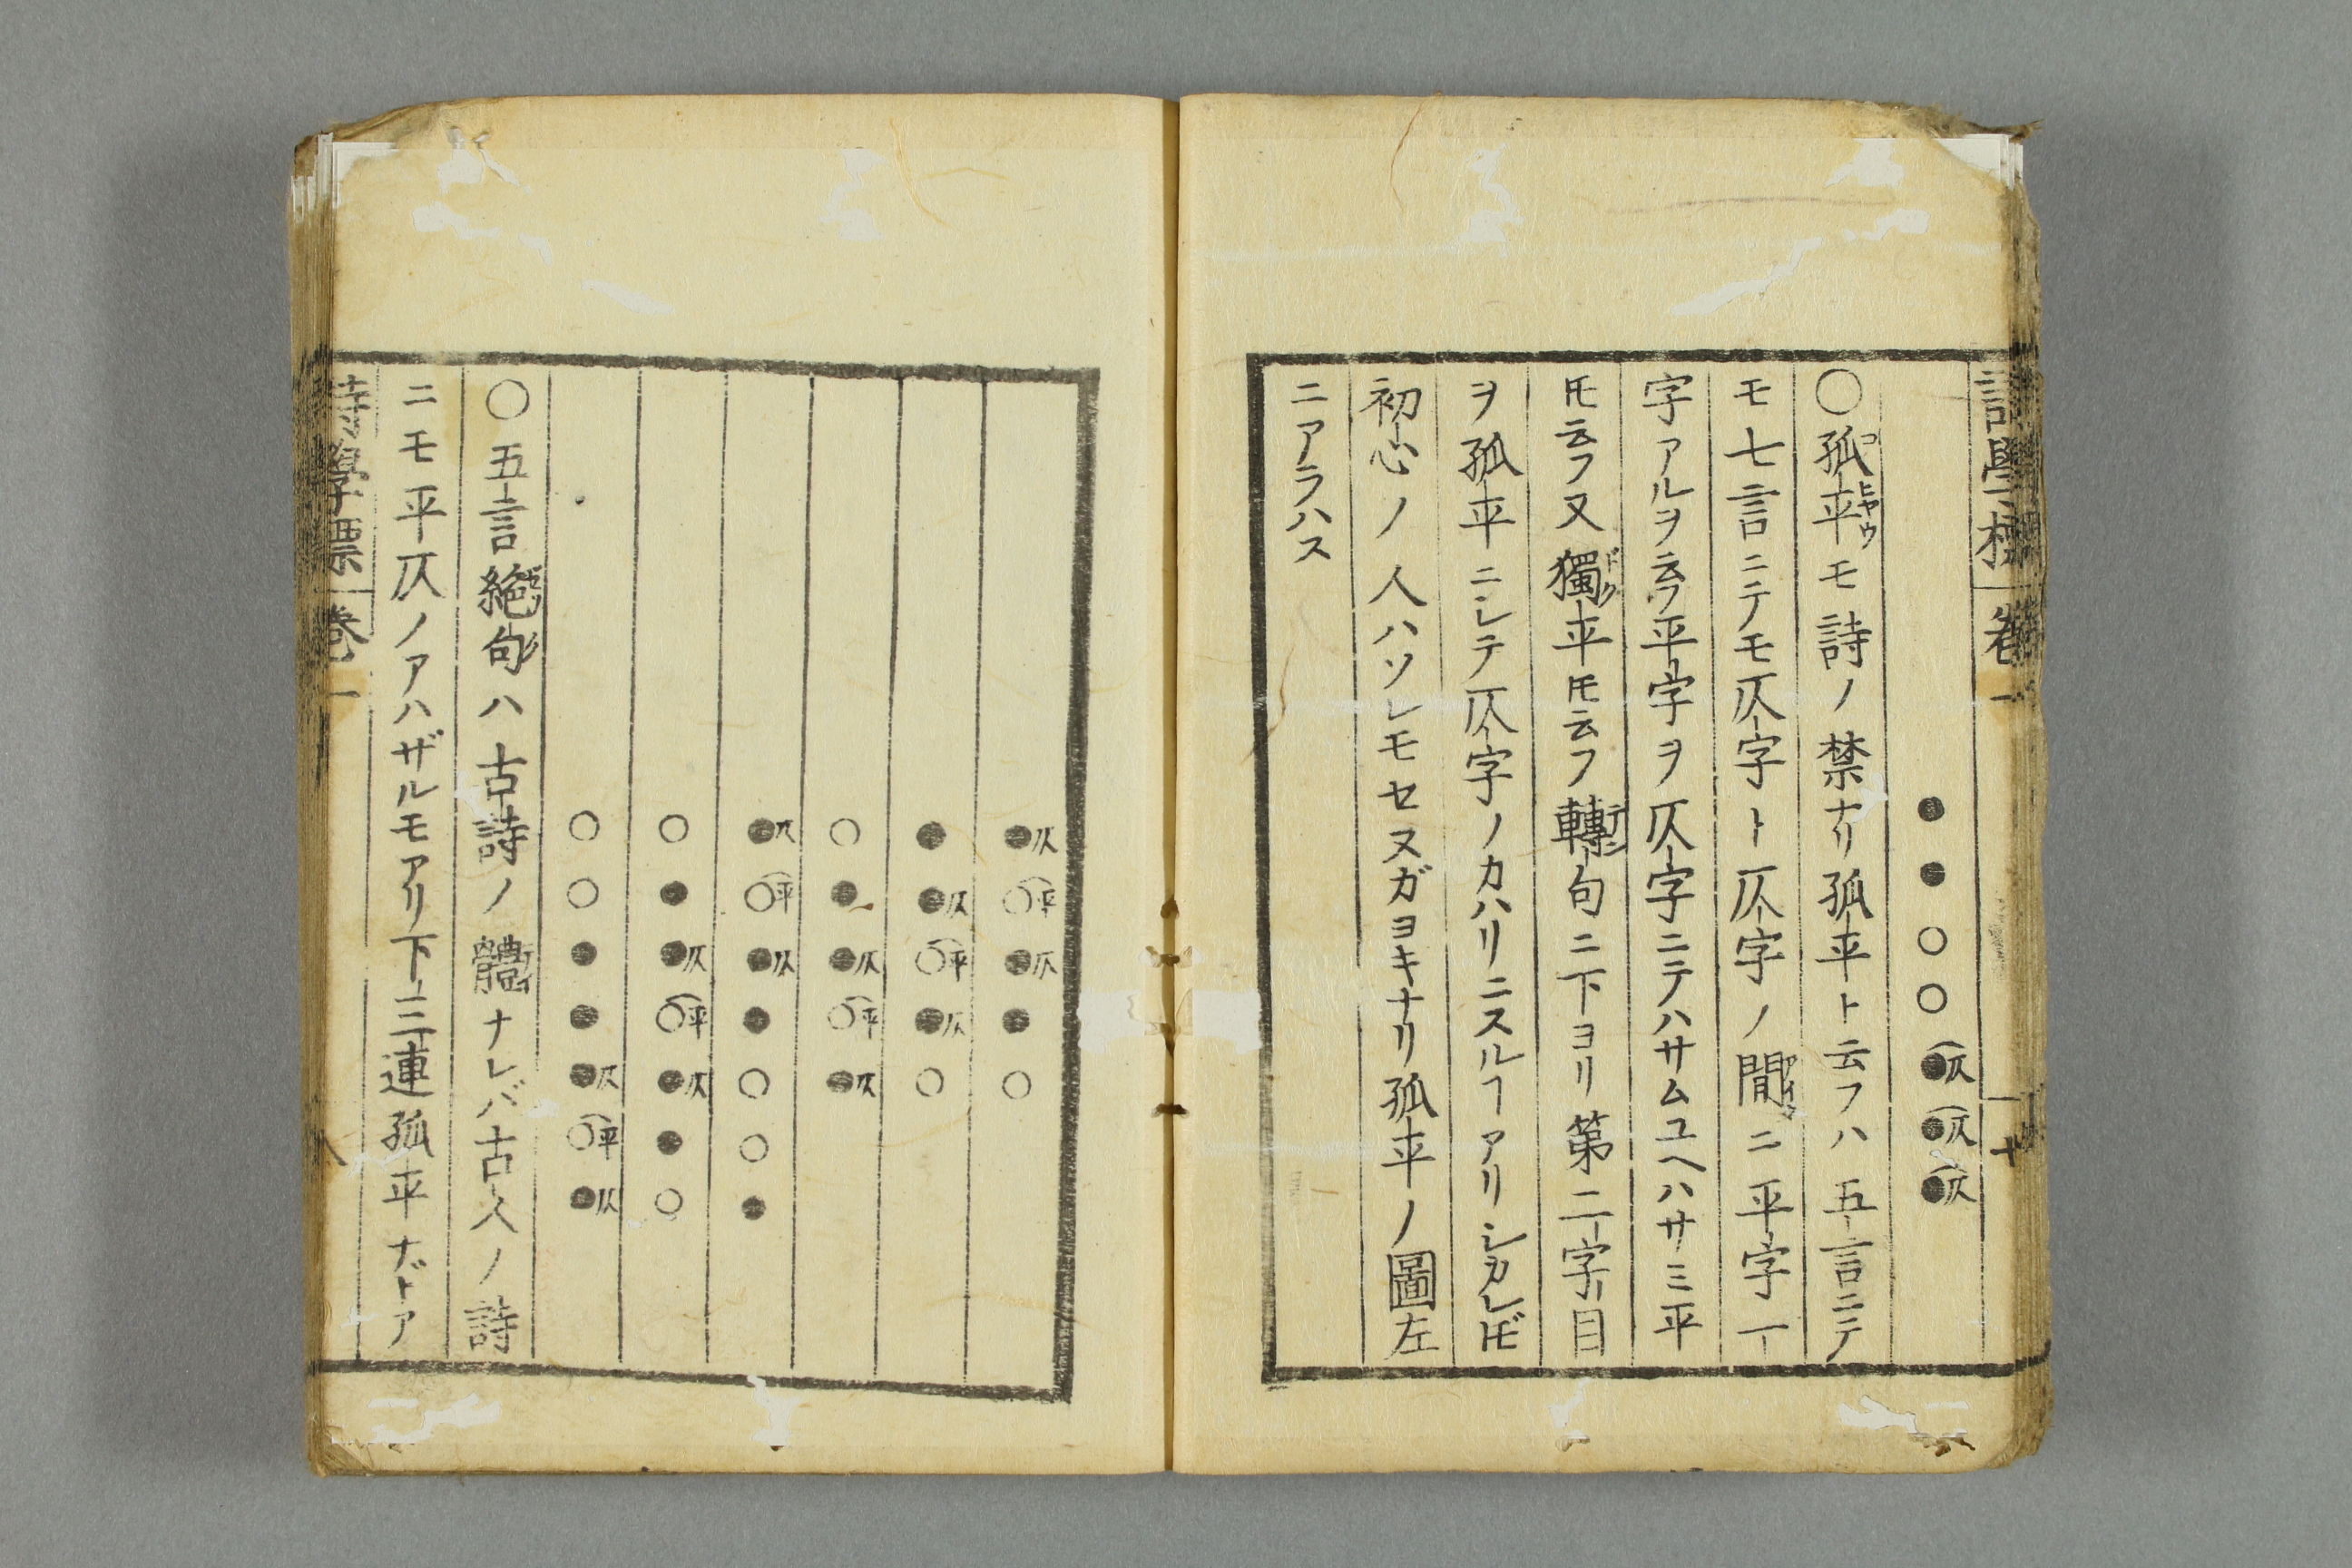 詩學標　卷一　十
●●○○●仄●仄●仄
○孤平モ詩ノ禁ナリ孤平ト云フハ五言ニテ
モ七言ニテモ仄字ト仄字ノ間ニ平字一
字アルヲ云フ平字ヲ仄字ニテハサムユヘハサミ平
𪜈云フ又獨平𪜈云フ轉句ニ下ヨリ第二字目
ヲ孤平ニシテ仄字ノカハリニスルヿアリシカレ𪜈
初心ノ人ハソレモセヌガヨキナリ孤平ノ圖左
ニアラハス
●仄○平●仄●○
●●仄○平●仄○
○●●仄○平●仄
●仄○平●仄●○○●
○●●仄○平●仄●○
○○●●●仄○平●仄
○五言絶句ハ古詩ノ體ナレバ古人ノ詩
ニモ平仄ノアハザルモアリ下三連孤平ナドア
詩學標　卷一